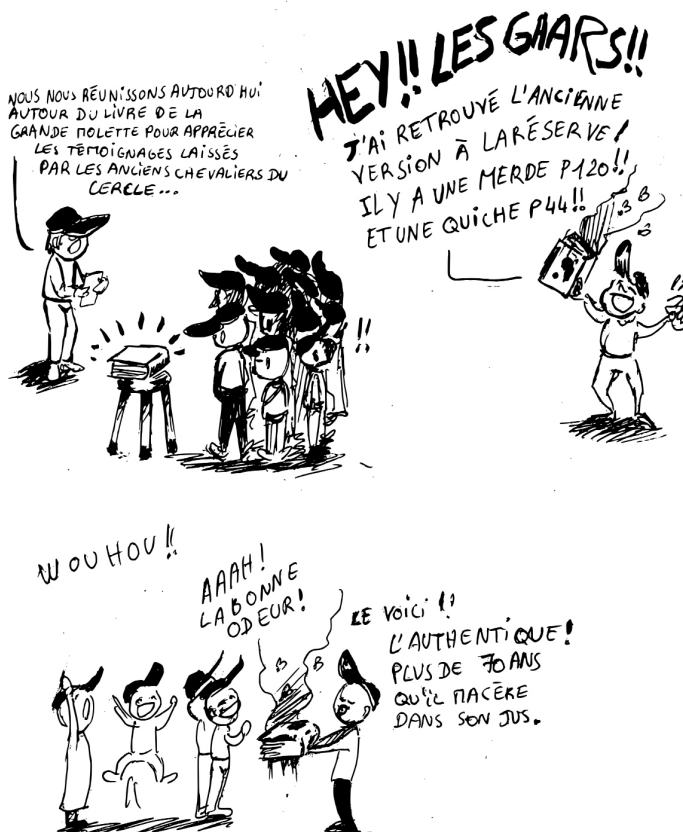 NOUS NOUS RÉUNISSONS AUJOURD'HUI
AUTOUR DU LIVRE DE LA
GRANDE MOLETTE POUR APPRÉCIER
LES TÉMOIGNAGES LAISSÉS
PAR LES ANCIENS CHEVALIERS DU
CERCLE...
HEY!! LES GAARS!!
J'AI RETROUVÉ L'ANCIENNE
VERSION À LA RÉSERVE!
IL Y A UNE MERDE P120!!
ET UNE QUICHE P44!!
!!
WOUHOU!!
AAAH!
LA BONNE
ODEUR!
LE VOICI!!
L'AUTHENTIQUE!
PLUS DE 70 ANS
QU'IL MACÈRE
DANS SON JUS.